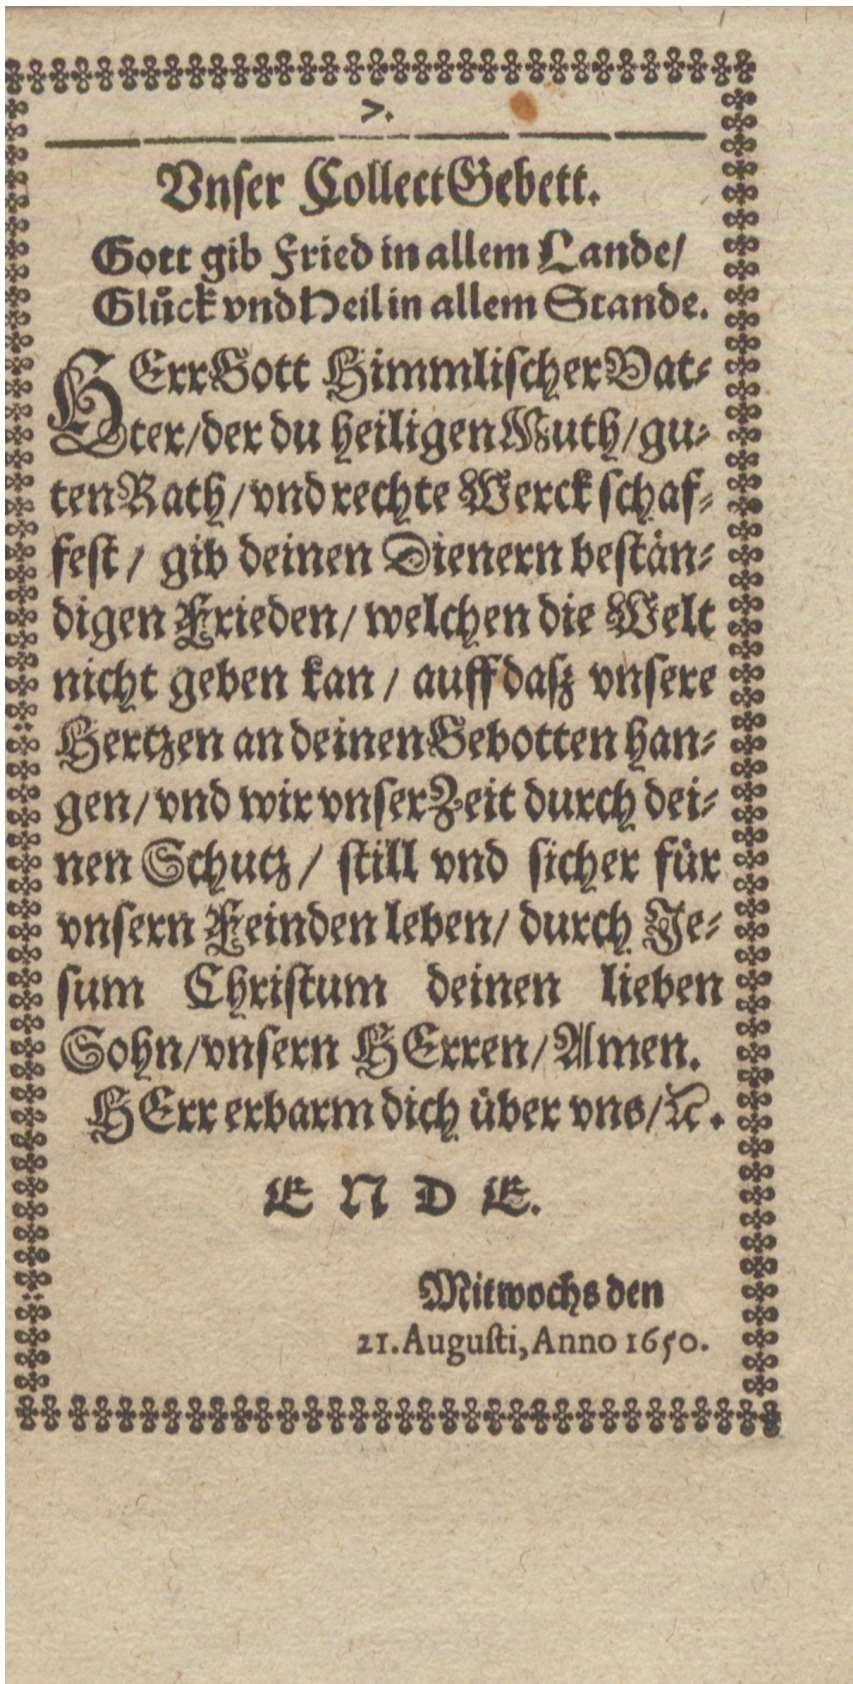 7.
Vnser Collect Gebett.
Gott gib Fried in allem Lande/
Glůck vnd Heil in allem Stande.
HErr Gott Himmlischer Vat⸗
ter/der du heiligen Muth/gu⸗
ten Rath/vnd rechte Werck schaf⸗
fest/ gib deinen Dienern bestän⸗
digen Frieden/ welchen die Welt
nicht geben kan/ auff dasz vnsere
Hertzen an deinen Gebotten han⸗
gen/vnd wir vnser Zeit durch dei⸗
nen Schutz/ still vnd sicher für
vnsern Feinden leben/ durch Je⸗
sum Christum deinen lieben
Sohn/vnsern HErren/Amen.
HErr erbarm dich über vns/ꝛc.
E N D E.
Mitwochs den
21. Augusti, Anno 1650.